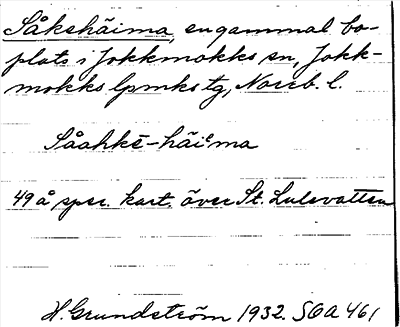 Såkshäima, en gammal bo-
plats i Jokkmokks sn, Jokk-
mokks lpmks tg, Norrb. l.
Såahkē-häiᵉma
49 å, spec. kart. över St. Lulevatten
H. Grundström 1932. SOA 461